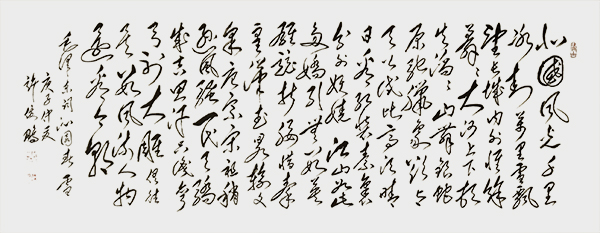 北國风光千里
冰封万里雪飘
望长城内外惟馀
莽莽大河上下顿
失滔滔山舞银蛇
原驰腊象欲与
天公试比高须晴
日看红装素裹
分外妖娆江山如此
多娇引无数英
雄竞折腰惜秦
皇汉武略输文
采唐宗宋祖稍
逊风骚一代天骄
成吉思汗只识弯
弓射大雕俱往
矣数风流人物
还看今朝
毛泽东词沁园春雪
庚子仲夏
许俊